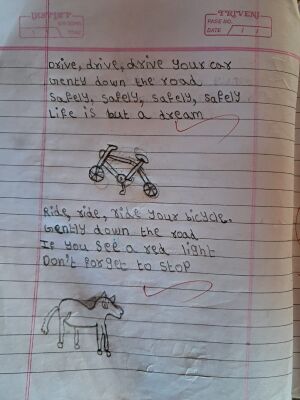 TRIVENI
PAGE NO.
DATE
Drive, drive, drive your car
Gently down the road
Safely, safely, safely, safely
Life is but a dream
Ride, ride, ride your bicycle.
Gently down the road
If you see a red light
Don't forget to stop